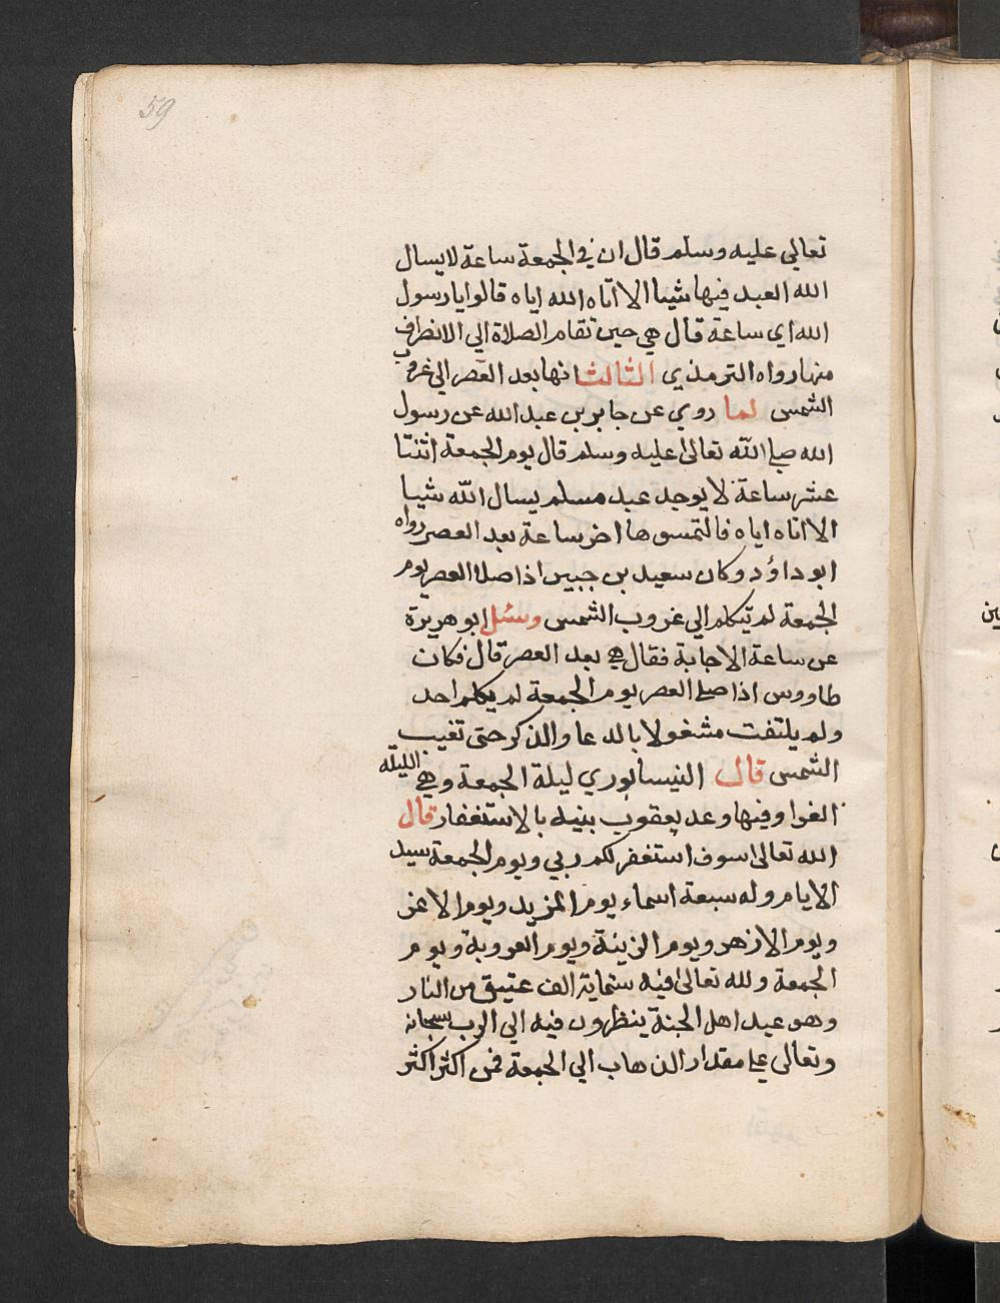 59
تعالي عليه وسلم قال ان في الجمعة ساعة لا يسال
الله العبد فيها شيا الا اتاه الله اياه قالوا يا رسول
الله اي ساعة قال هي حين تقام الصلاة الي الانصراف
منها رواه الترمذي الثالث انها بعد العصر الي غروب
الشمس لما روي عن جابر بن عبد الله عن رسول
الله صلي الله تعالى عليه وسلم قال يوم الجمعة اثنتا
عشر ساعة لا يوجد عبد مسلم يسال الله شيا
الا اتاه اياه فالتمسوها اخر ساعة بعد العصر رواه
ابو داؤد وكان سعيد بن جبير اذا صلا العصر يوم
الجمعة لم يتكلم الي غروب الشمس وسئل ابو هريرة
عن ساعة الاجابة فقال هي بعد العصر قال فكان
طاووس اذا صلي العصر يوم الجمعة لم يكلم احد
ولم يلتفت مشغولا بالدعا والذكر حتى تغيب
الشمس قال النيسابوري ليلة الجمعة وهي الليلة
الغرا وفيها وعد يعقوب بنيه بالاستغفار قال
الله تعالى سوف استغفر لكم ربي ويوم الجمعة سيد
الايام وله سبعة اسماء يوم المزيد ويوم الاغر
ويوم الازهر ويوم الزينة ويوم العروبة ويوم
الجمعة ولله تعالى فيه ستماية الف عتيق من النار
وهو عيد اهل الجنة ينظرون فيه الي الرب سبحانه
وتعالى علي مقدار الذهاب الي الجمعة فمن اكثر اكثر